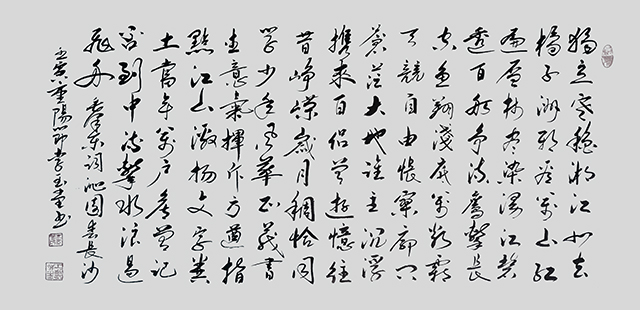 獨立寒穐湘江北去
橘子洲頭看萬山紅
遍層林盡染漫江碧
透百舸争流鷹擊長
空魚翔淺底萬類霜
天競自由悵寥廓問
蒼茫大地誰主沉浮
攜來百侣曾遊憶往
昔崢嶸歲月稠恰同
學少年風華正茂書
生意氣揮斥方遒指
點江山激揚文字糞
土當年萬户侯曾記
否到中流擊水浪遏
飛舟 毛澤東詞沁園春長沙
壬寅重陽節李玉堂書